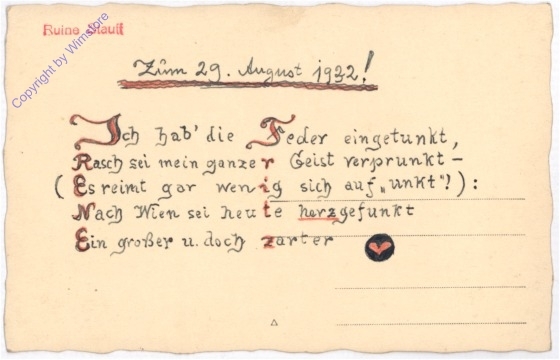 Ruine Stauff
Copyright by Wimstore
Zum 29. August 1932!
Ich hab' die Feder eingetunkt,
Rasch sei mein ganzer Geist verprunkt –
(Es reimt gar wenig sich auf „unkt"!) :
Nach Wien sei heute herzgefunkt
Ein großer u. doch zarter